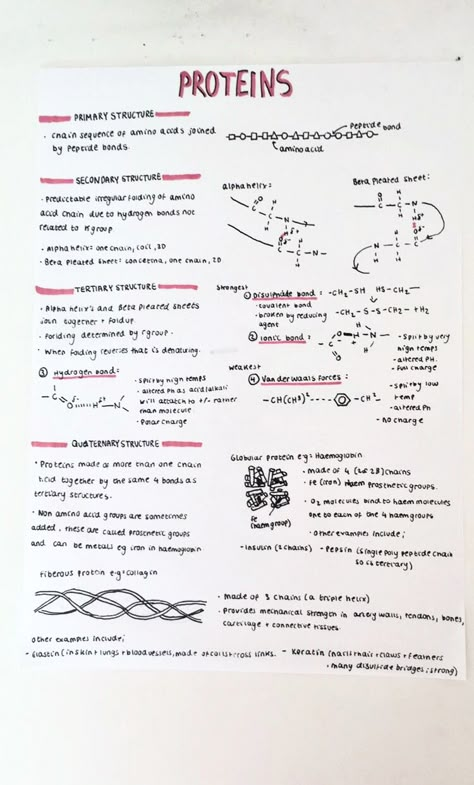 PROTEINS
PRIMARY STRUCTURE
• chain sequence of amino acids joined
by peptide bonds.
Peptide bond
amino acid
SECONDARY STRUCTURE
• Predictable irregular folding of amino
acid chain due to hydrogen bonds not
related to R group
• Alpha helix: one chain, coil, 3D
• Beta Pleated sheet: concertina, one chain, 2D
alpha helix:
Beta Pleated sheet:
TERTIARY STRUCTURE
• Alpha helix's and Beta pleated sheets
join together + fold up.
• Folding determined by r group.
• When folding reverses that is denaturing.
strongest
① Disulphide bond:
-CH₂-SH HS-CH₂-
• covalent bond
• broken by reducing
agent
-CH₂-S-S-CH₂- + H₂
② Ionic bond:
• split by very
high temps
• altered PH.
• full charge
③ Hydrogen bond:
• split by high temps
• altered Ph as acid/alkali
will attach to +/- rather
than molecule
• Polar charge
weakest
④ Van der waals forces:
• split by low
temp
• altered pH
• no charge
QUATERNARY STRUCTURE
• Proteins made of more than one chain
held together by the same 4 bonds as
tertiary structures.
• Non amino acid groups are sometimes
added, these are called prosthetic groups
and can be metals eg iron in haemoglobin
Globular protein eg: Haemoglobin
• made of 4 (2α 2β) chains
• Fe (iron) Haem prosthetic groups.
• O₂ molecules bind to haem molecules
one to each of the 4 haem groups
Fe
(haem group)
• other examples include;
- Insulin (2 chains) - Pepsin (single poly peptide chain
so is tertiary)
Fiberous protein eg: collagin
• made of 3 chains (a triple helix)
• Provides mechanical strength in artery walls, tendons, bones,
cartilage + connective tissues.
other examples include;
- Elastin (in skin + lungs + blood vessels, made of coils + cross links.
- Keratin (nails + hair + claws + feathers
• many disulfide bridges: strong)